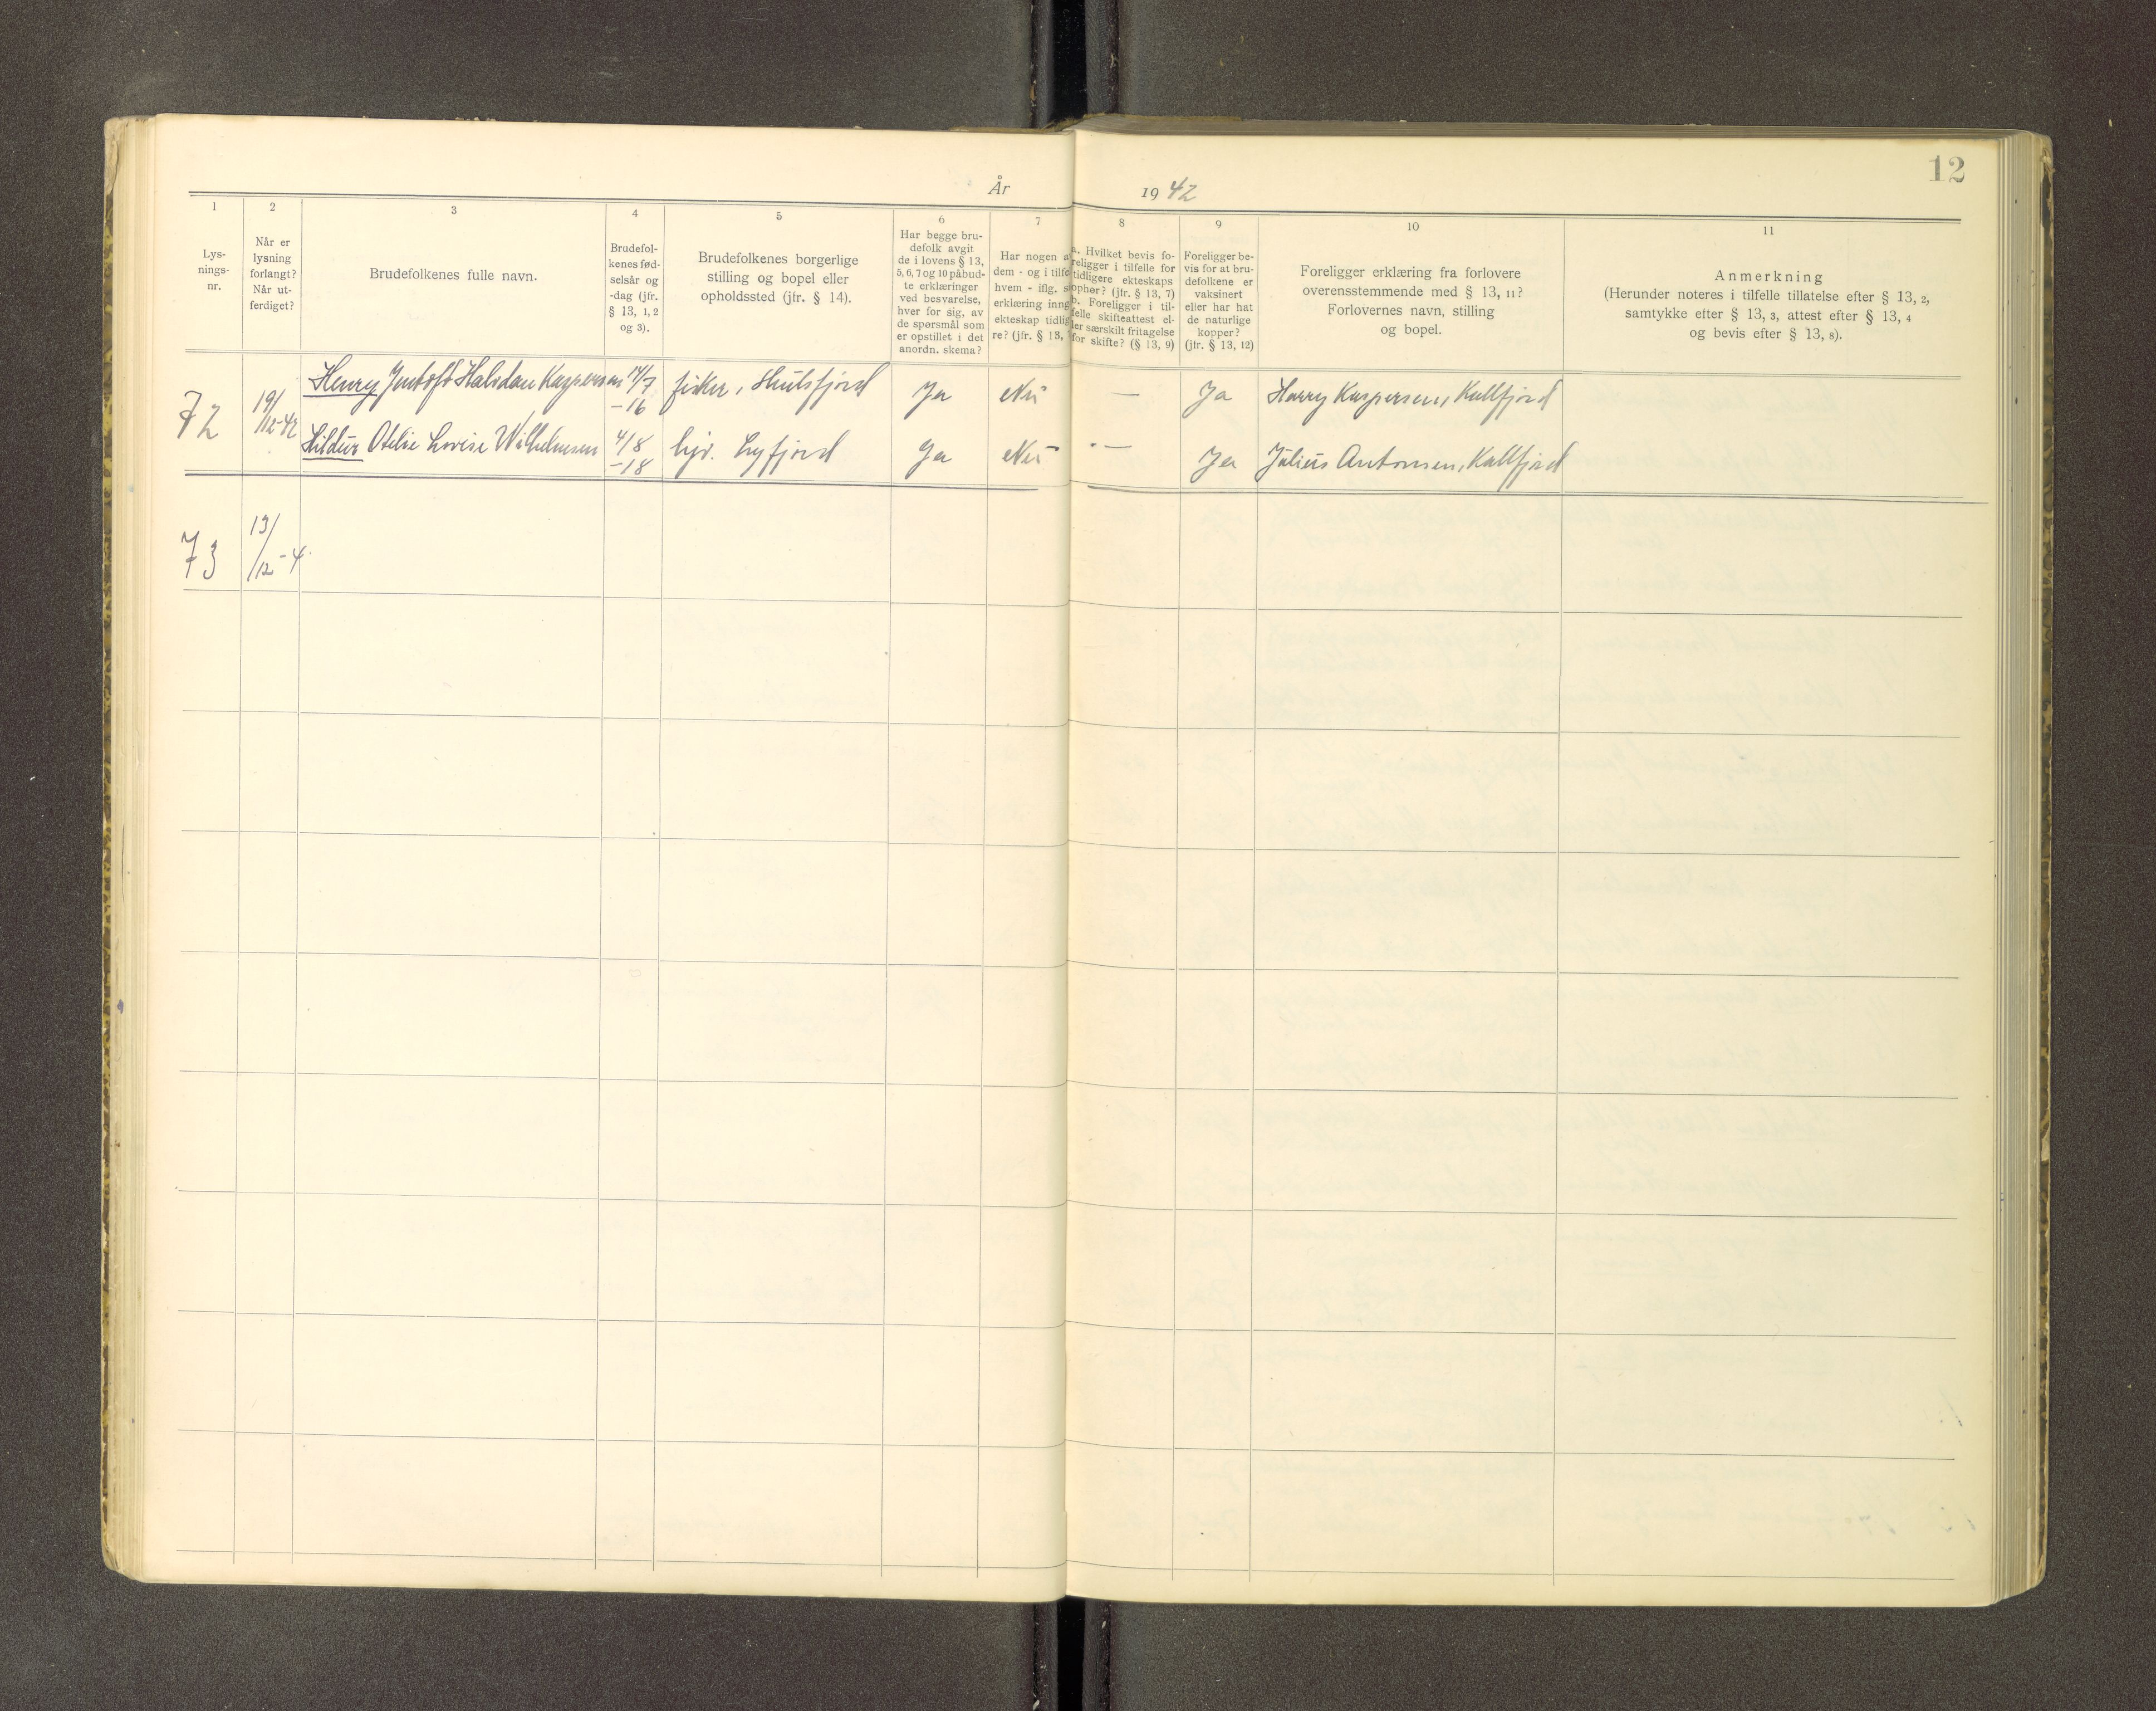 12
År 1942
1 2 3 4 5 6 7 8 9 10 11
Lys-
nings-
nr.
Når er
lysning
forlangt?
Når ut-
ferdiget?
Brudefolkenes fulle navn.
Brudefol-
kenes fød-
selsår og
-dag (jfr.
§ 13, 1, 2
og 3).
Brudefolkenes borgerlige
stilling og bopel eller
opholdssted (jfr. § 14).
Har begge bru-
defolk avgit
de i lovens § 13,
5, 6, 7 og 10 påbud-
te erklæringer
ved besvarelse,
hver for sig, av
de spørsmål som
er opstillet i det
anordn. skema?
Har nogen a
dem - og i tilfe
hvem - iflg. s
erklæring inng
ekteskap tidlig
re? (jfr. § 13,
a. Hvilket bevis fo-
religger i tilfelle for
tidligere ekteskaps
ophør? (jfr. § 13, 7)
b. Foreligger i til-
felle skifteattest el-
ler særskilt fritagelse
for skifte? (§ 13, 9)
Foreligger be-
vis for at bru-
defolkene er
vaksinert
eller har hat
de naturlige
kopper?
(jfr. § 13, 12)
Foreligger erklæring fra forlovere
overensstemmende med § 13, 11?
Forlovernes navn, stilling
og bopel.
Anmerkning
(Herunder noteres i tilfelle tillatelse efter § 13, 2,
samtykke efter § 13, 3, attest efter § 13, 4
og bevis efter § 13, 8).
72 19/12-42 Henry Jentoft Halvdan Kaspersen 14/7 -16 fisker, Ja Nei — Ja Harry Kaspersen, Kallfjord
Hildur Otelie Lovise Wilhelmsen 4/8 -18 hjv. Lyfjord Ja Nei — Ja Julius Antonsen, Kallfjord
73 19/12-4